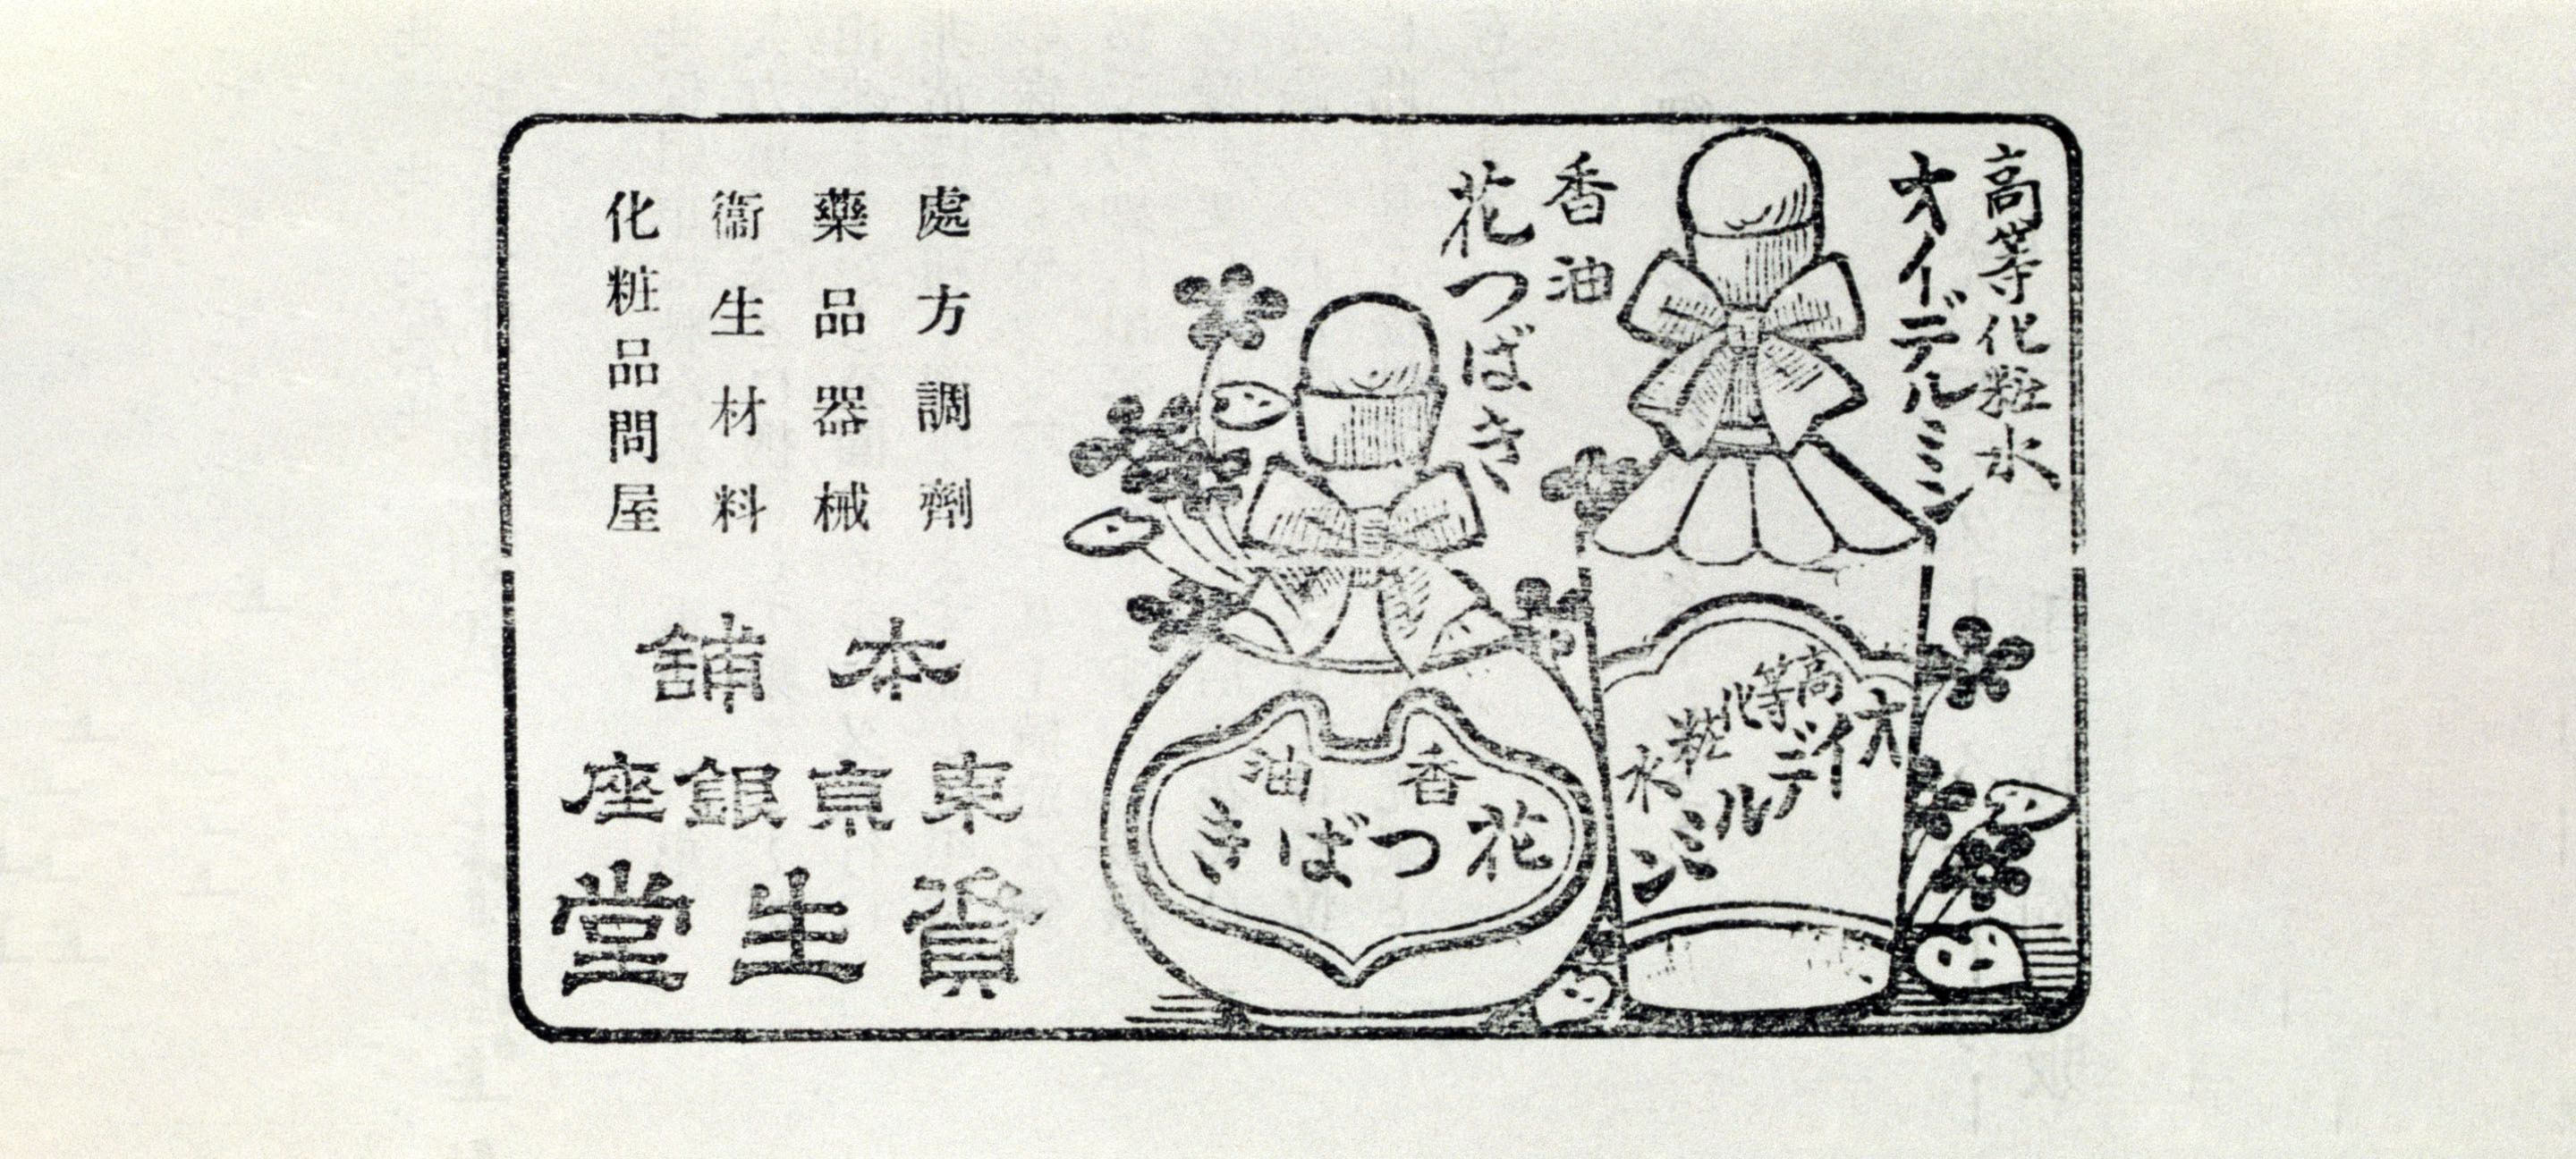 高等化粧水
オイデルミン
香油
花つばき
高等化粧水
オイデルミン
香油
花つばき
處方調劑
藥品器械
衞生材料
化粧品問屋
本舖
東京銀座
資生堂